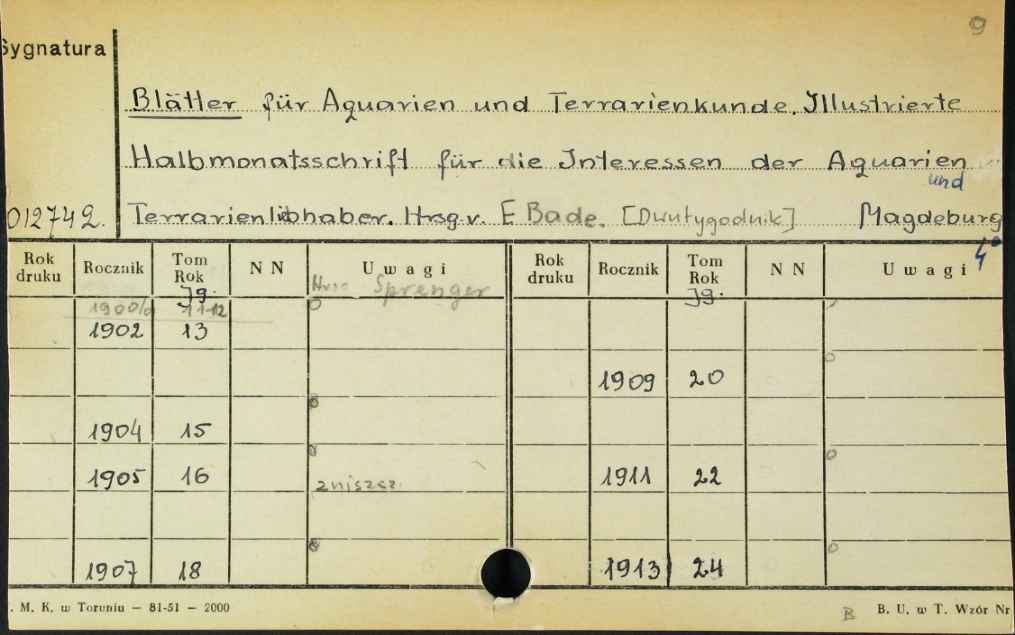 9
Sygnatura
Blätter für Aquarien und Terrarienkunde. Illustrierte
Halbmonatsschrift für die Interessen der Aquarien
und
012742. Terrarienliebhaber. Hrsg.v. E. Bade. [Dwutygodnik] Magdeburg
4°
Rok druku Rocznik Tom Rok N N Uwagi Rok druku Rocznik Tom Rok N N Uwagi
Jg. Sprenger Jg.
1900/1 11-12
1902 13
1909 20
1904 15
1905 16 zniszcz. 1911 22
1907 18 1913 24
. M. K. w Toruniu — 81-51 — 2000 B B. U. w T. Wzór Nr